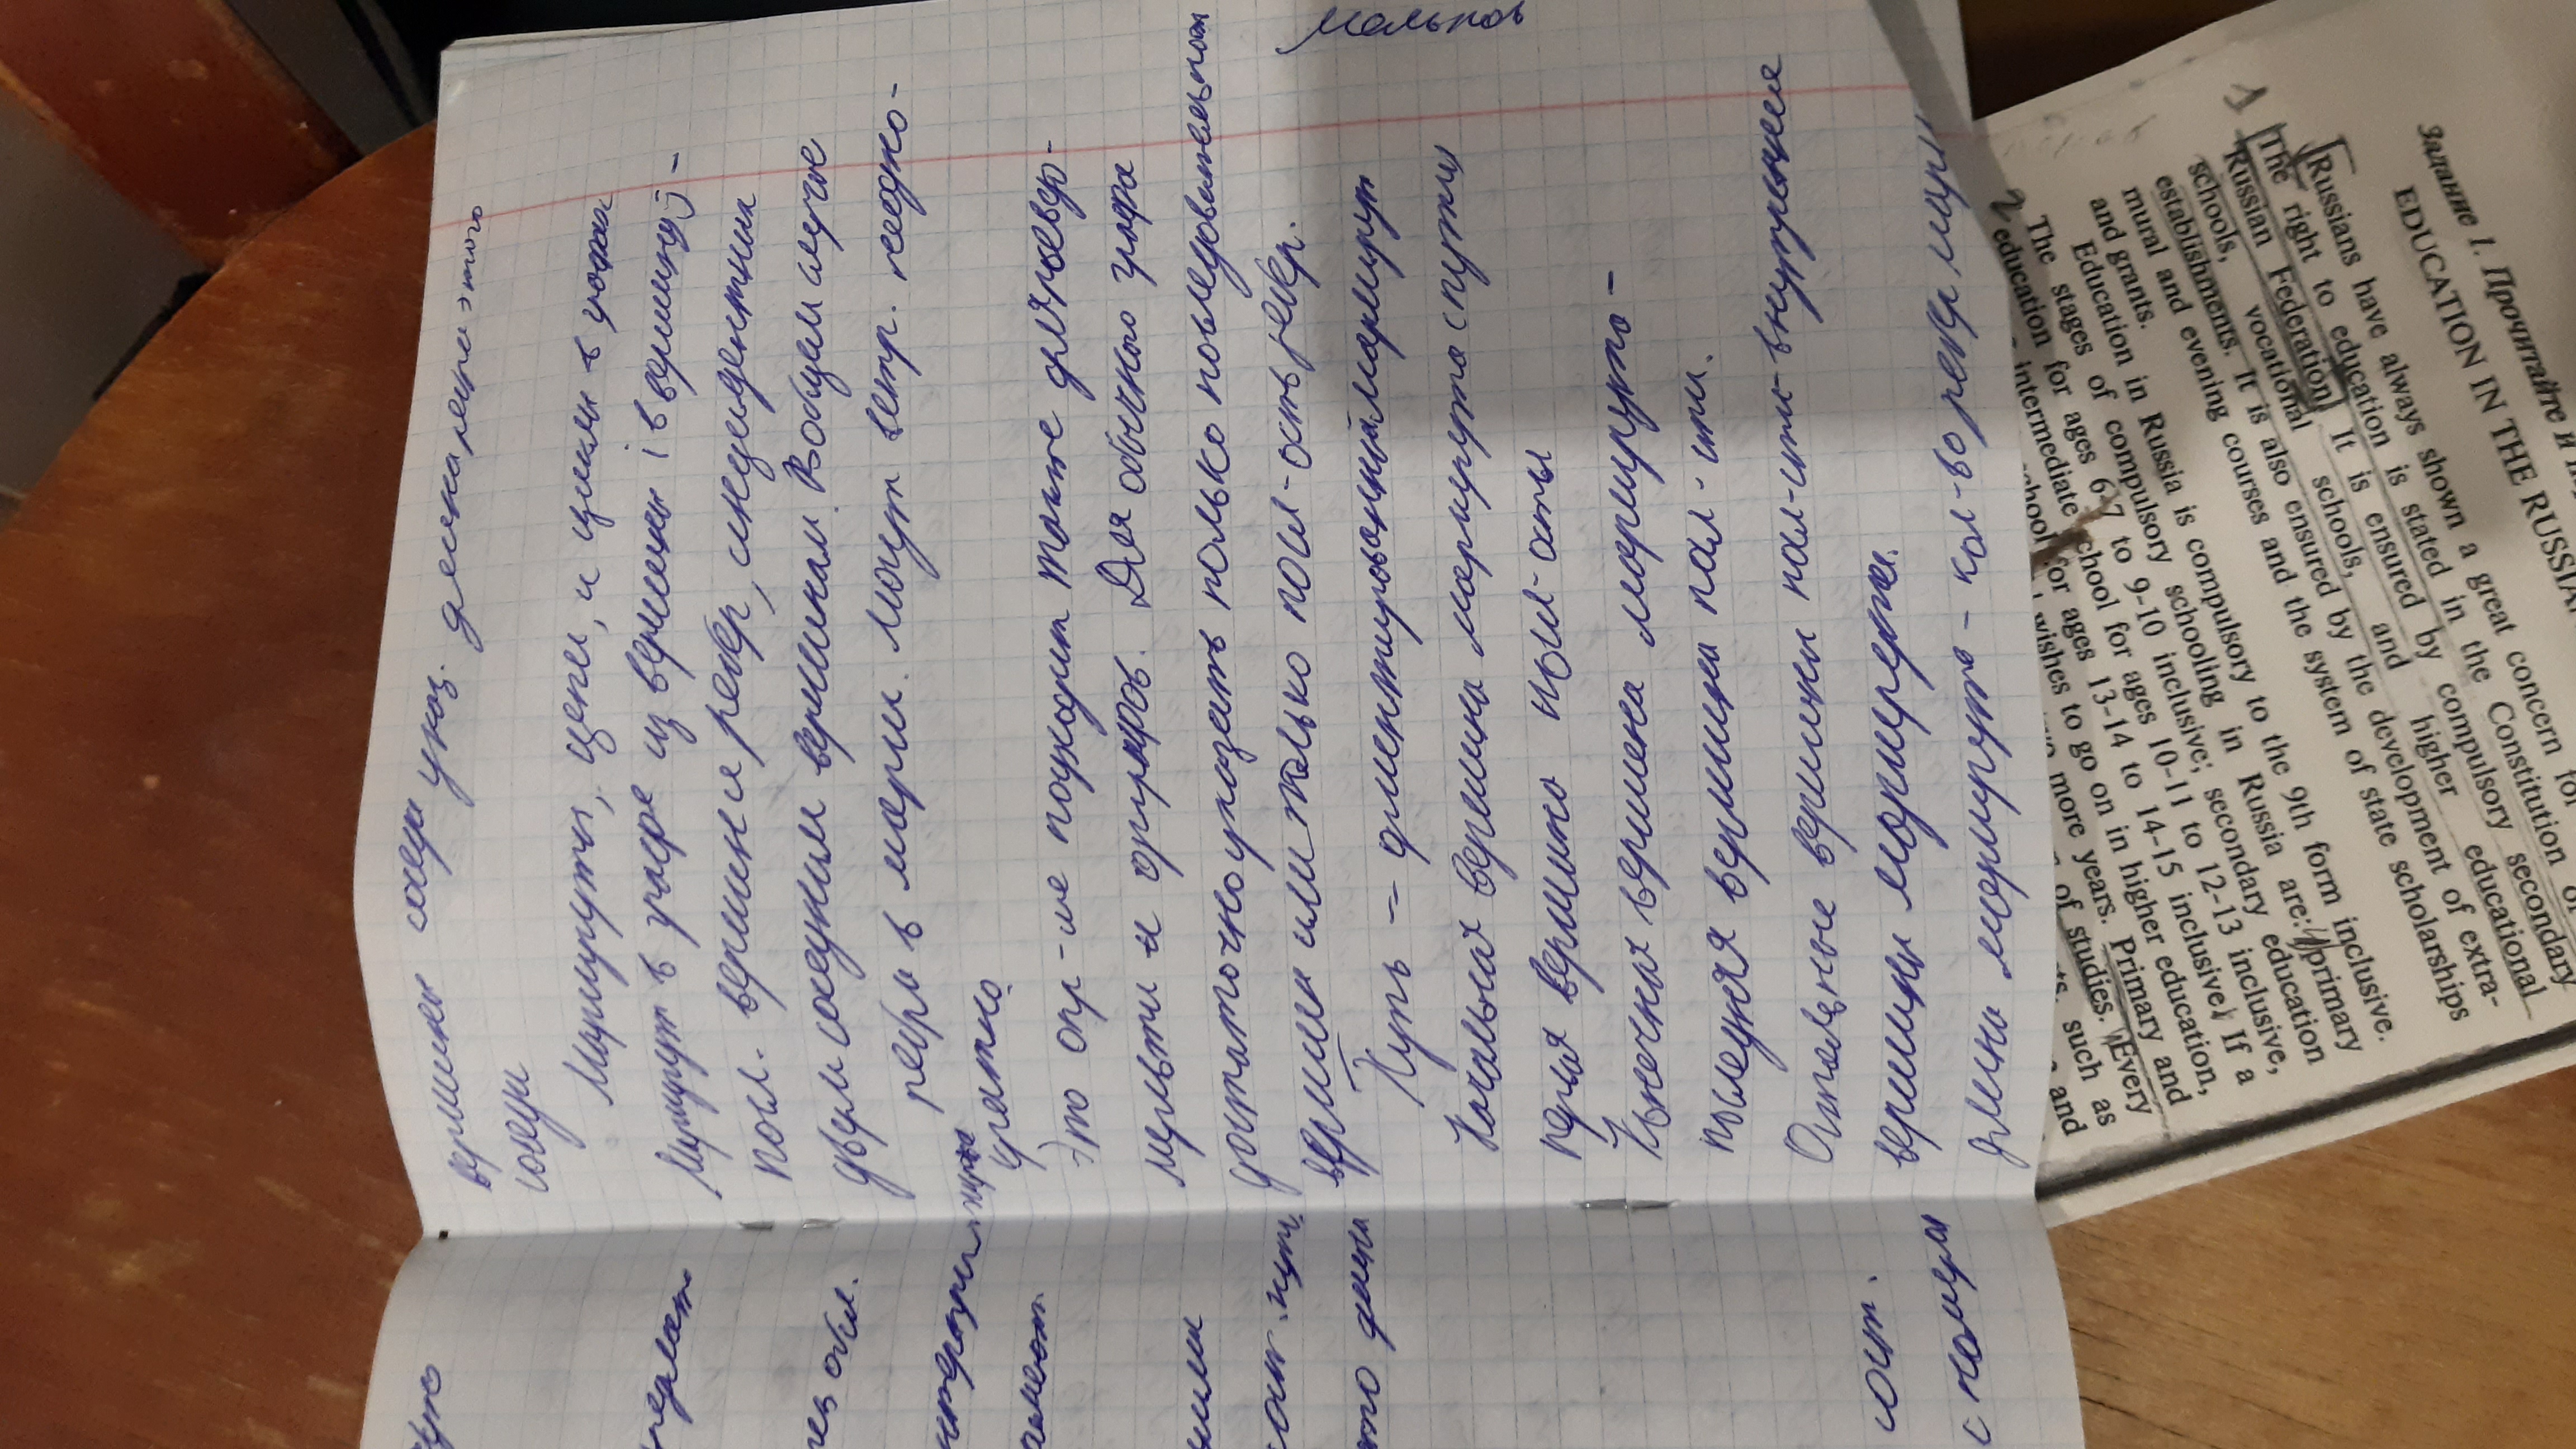 вершины соседа указ. длина ребра этого
соседи
Маршруты, цепи, и циклы в графах
Маршрут в графе из вершины i в вершину j –
посл. вершин и ребер, инцидентных
двум соседним вершинам. В общем случае
ребра в марш. могут встр. неодно-
кратно
Это опр-ие подходит также для псевдо-
мульти и орграфов. Для обычного графа
достаточно указать только последовательност
вершин или только посл-ость ребер.
Путь – ориентированный маршрут
Начальная вершина маршрута (пути)
первая вершина посл-ости
Конечная вершина маршрута –
последняя вершина посл-сти.
Остальные вершины посл-сти внутренние
вершины маршрута.
Длина маршрута – кол-во ребер марш
рез обл.
имеют
ост. пути.
это длина
сост.
с номером
Задание 1. Прочитайте и
EDUCATION IN THE RUSSIA
Russians have always shown a great concern for
The right to education is stated in the Constitution of
Russian Federation. It is ensured by compulsory secondary
schools, vocational schools, and higher educational
establishments. It is also ensured by the development of extra-
mural and evening courses and the system of state scholarships
and grants.
Education in Russia is compulsory to the 9th form inclusive.
The stages of compulsory schooling in Russia are: primary
education for ages 6-7 to 9-10 inclusive; secondary education
intermediate school for ages 10-11 to 12-13 inclusive,
school for ages 13-14 to 14-15 inclusive. If a
wishes to go on in higher education,
two more years. Primary and
of studies. Every
such as
and